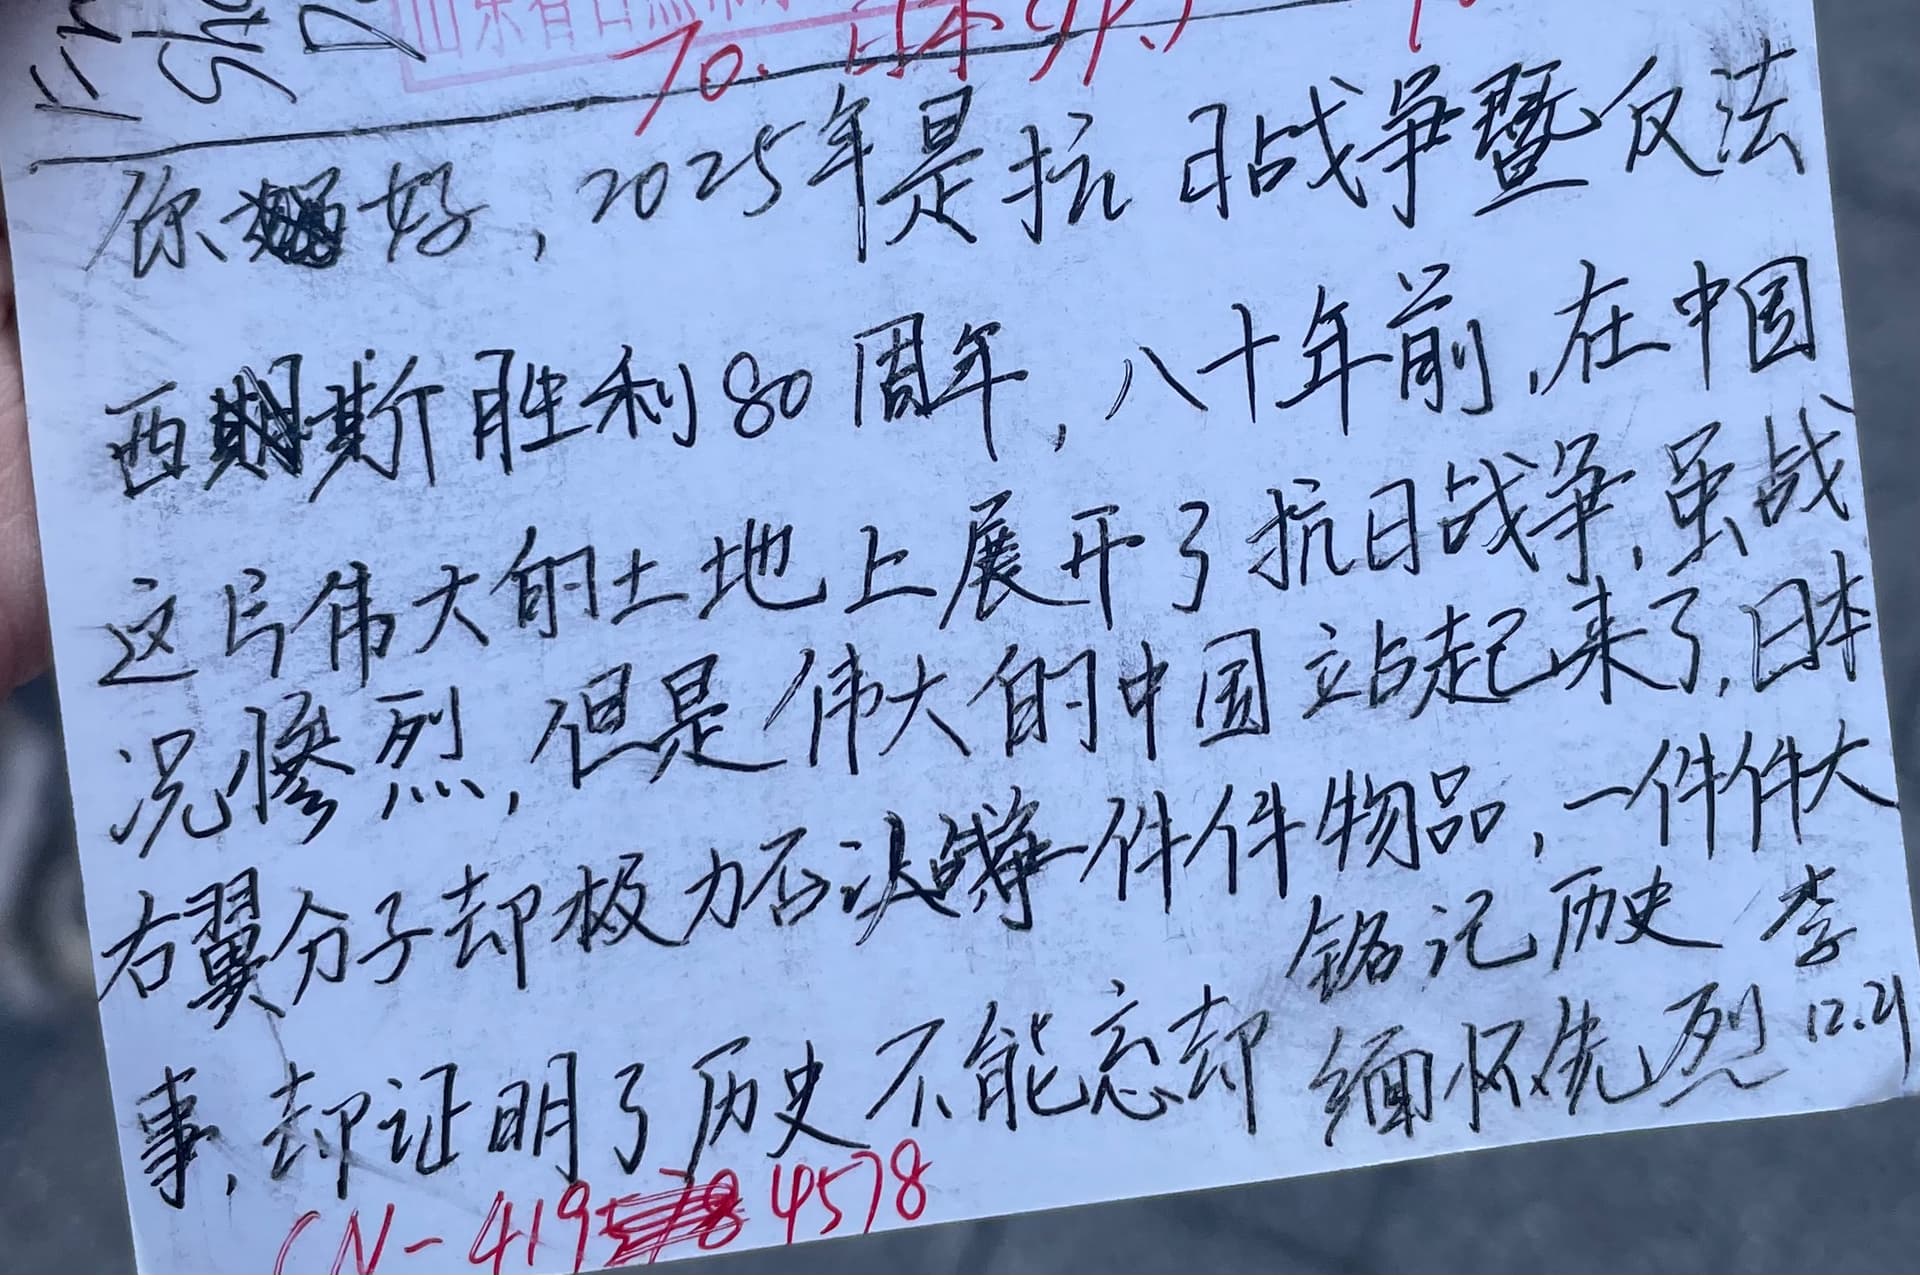 70. 日本
你好，2025年是抗日战争暨反法
西斯胜利80周年，八十年前，在中国
这片伟大的土地上展开了抗日战争，虽战
况惨烈，但是伟大的中国立站起来了，日本
右翼分子却极力否认战争一件件物品，一件件大
事，却证明了历史不能忘却
铭记历史 李
缅怀先烈 12.21
CN-4194578